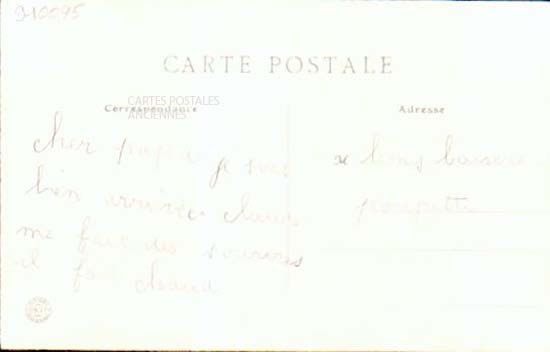 D-10095
CARTE POSTALE
Correspondance
CARTES POSTALES
ANCIENNES
Adresse
cher papa je suis
bien arrivée
me fait des sourires
il fait chaud
bons baisers
poupette